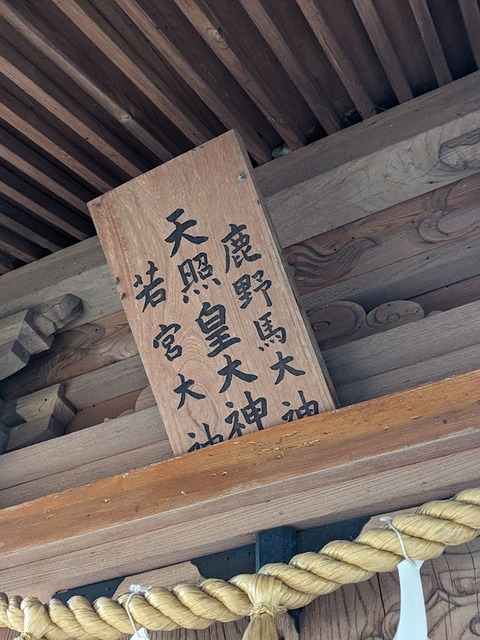 鹿野馬大神
天照皇大神
若宮大神